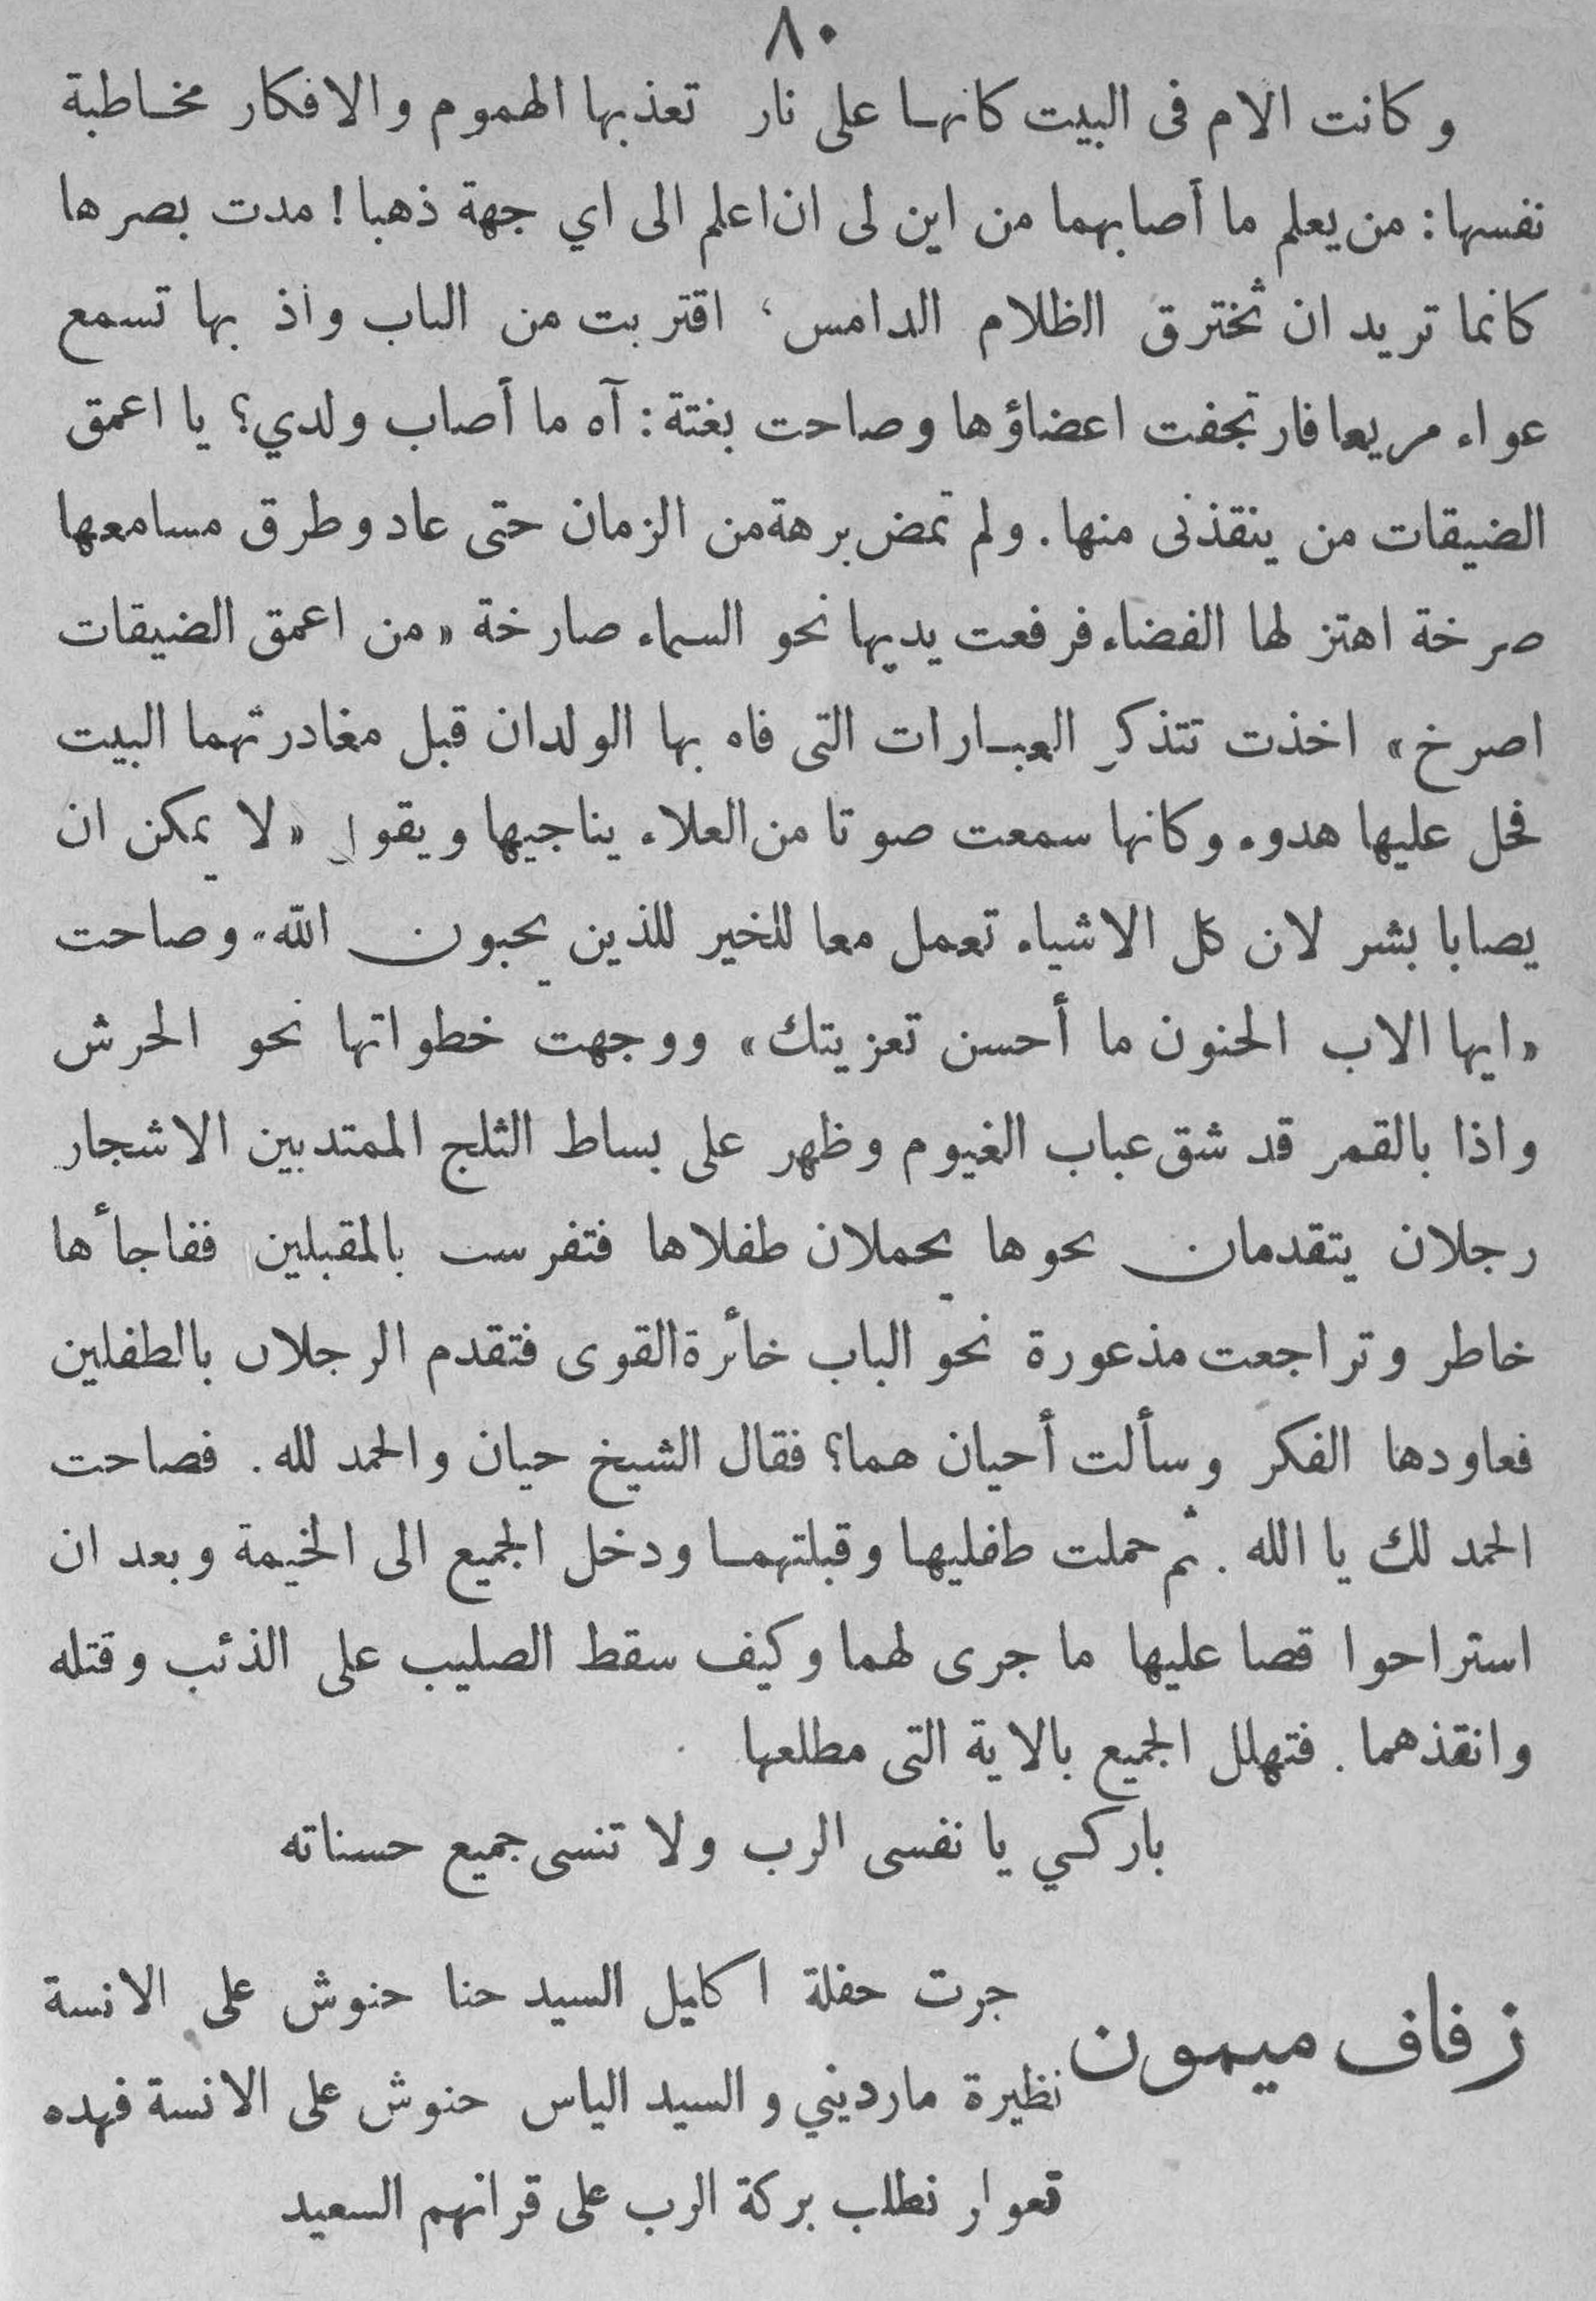 ٨٠
وكانت الام فى البيت كانها على نار تعذبها الهموم والافكار مخاطبة
نفسها: من يعلم ما أصابهما من اين لى ان اعلم الى اي جهة ذهبا! مدت بصرها
كانما تريد ان تخترق الظلام الدامس، اقتربت من الباب واذ بها تسمع
عواء مريعا فارتجفت اعضاؤها وصاحت بغتة: آه ما أصاب ولدي؟ يا اعمق
الضيقات من ينقذنى منها. ولم تمض برهة من الزمان حتى عاد وطرق مسامعها
صرخة اهتز لها الفضاء فرفعت يديها نحو السماء صارخة «من اعمق الضيقات
اصرخ» اخذت تتذكر العبارات التى فاه بها الولدان قبل مغادرتهما البيت
فحل عليها هدوء وكانها سمعت صوتا من العلاء يناجيها ويقول «لا يمكن ان
يصابا بشر لان كل الاشياء تعمل معا للخير للذين يحبون الله» وصاحت
«ايها الاب الحنون ما أحسن تعزيتك» ووجهت خطواتها نحو الحرش
واذا بالقمر قد شق عباب الغيوم وظهر على بساط الثلج الممتد بين الاشجار
رجلان يتقدمان نحوها يحملان طفلاها فتفرست بالمقبلين ففاجأها
خاطر وتراجعت مذعورة نحو الباب خائرة القوى فتقدم الرجلان بالطفلين
فعاودها الفكر وسألت أحيان هما؟ فقال الشيخ حيان والحمد لله. فصاحت
الحمد لك يا الله. ثم حملت طفليها وقبلتهما ودخل الجميع الى الخيمة وبعد ان
استراحوا قصا عليها ما جرى لهما وكيف سقط الصليب على الذئب وقتله
وانقذهما. فتهلل الجميع بالاية التى مطلعها
باركي يا نفسى الرب ولا تنسى جميع حسناته
زفاف ميمون
جرت حفلة اكليل السيد حنا حنوش على الانسة
نظيرة مارديني والسيد الياس حنوش على الانسة فهده
قعوار نطلب بركة الرب على قرانهم السعيد